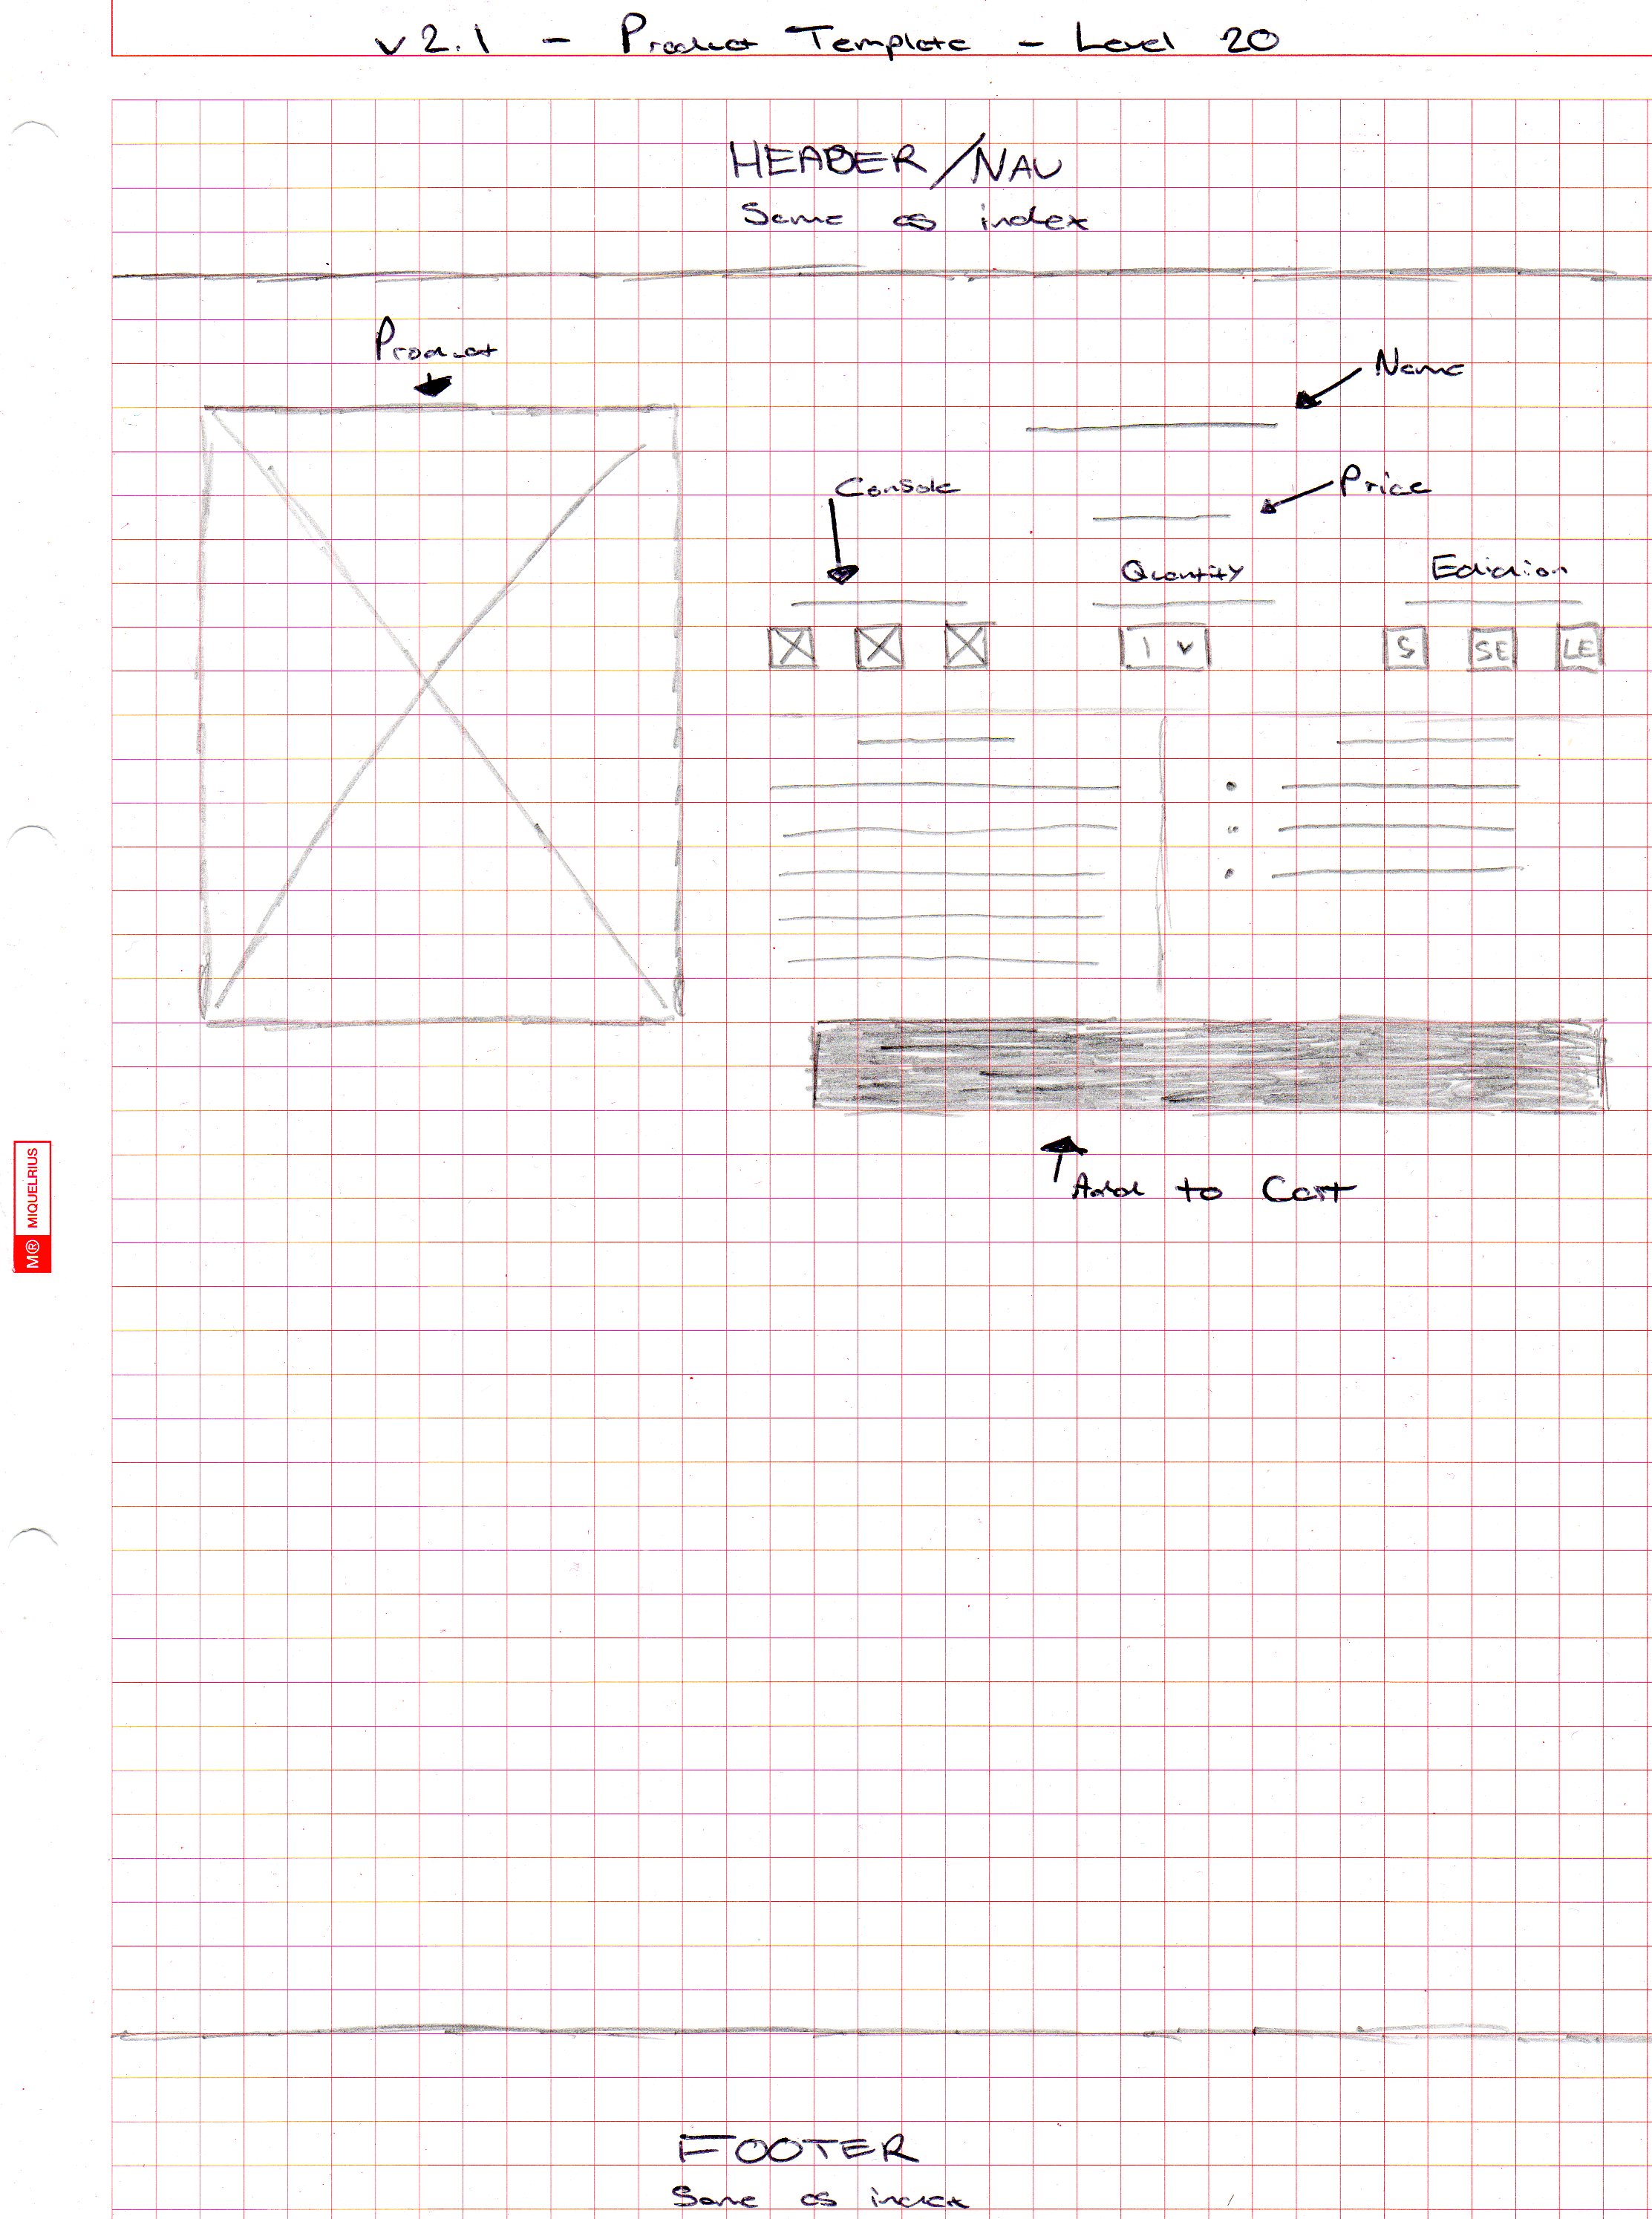 v2.1 - Product Template - Level 20
HEADER/NAV
Same as index
Product
Name
Console
Price
Quantity
Edidion
1 v
S
SE
LE
Add to Cart
M® MIQUELRIUS
FOOTER
Same as index